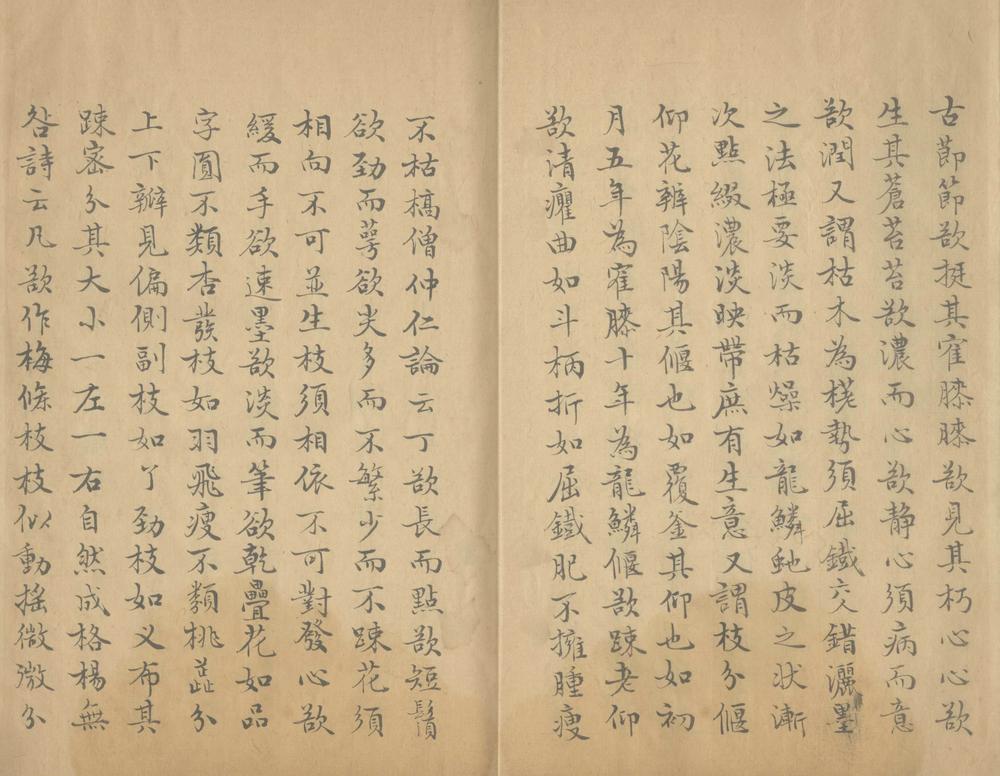 古節節欲挺其窠膝膝欲見其朽心心欲
生其蒼苔苔欲濃而心欲静心須病而意
欲潤又謂枯木為槎勢須屈鐵交錯灑墨
之法極要淡而枯燥如龍鱗虵皮之状漸
次點綴濃淡映帶庶有生意又謂枝分偃
仰花辨陰陽其偃也如覆釜其仰也如初
月五年為窠膝十年為龍鱗偃欲踈老仰
欲清癯曲如斗柄折如屈鐵肥不擁腫瘦
不枯槁僧仲仁論云丁欲長而點欲短鬚
欲勁而萼欲尖多而不繁少而不踈花須
相向不可並生枝須相依不可對發心欲
緩而手欲速墨欲淡而筆欲乾疊花如品
字圓不類杏發枝如羽飛瘦不類桃蕋分
上下辦見偏側副枝如丫勁枝如乂布其
踈密分其大小一左一右自然成格楊無
咎詩云凡欲作梅條枝枝似動搖微微分